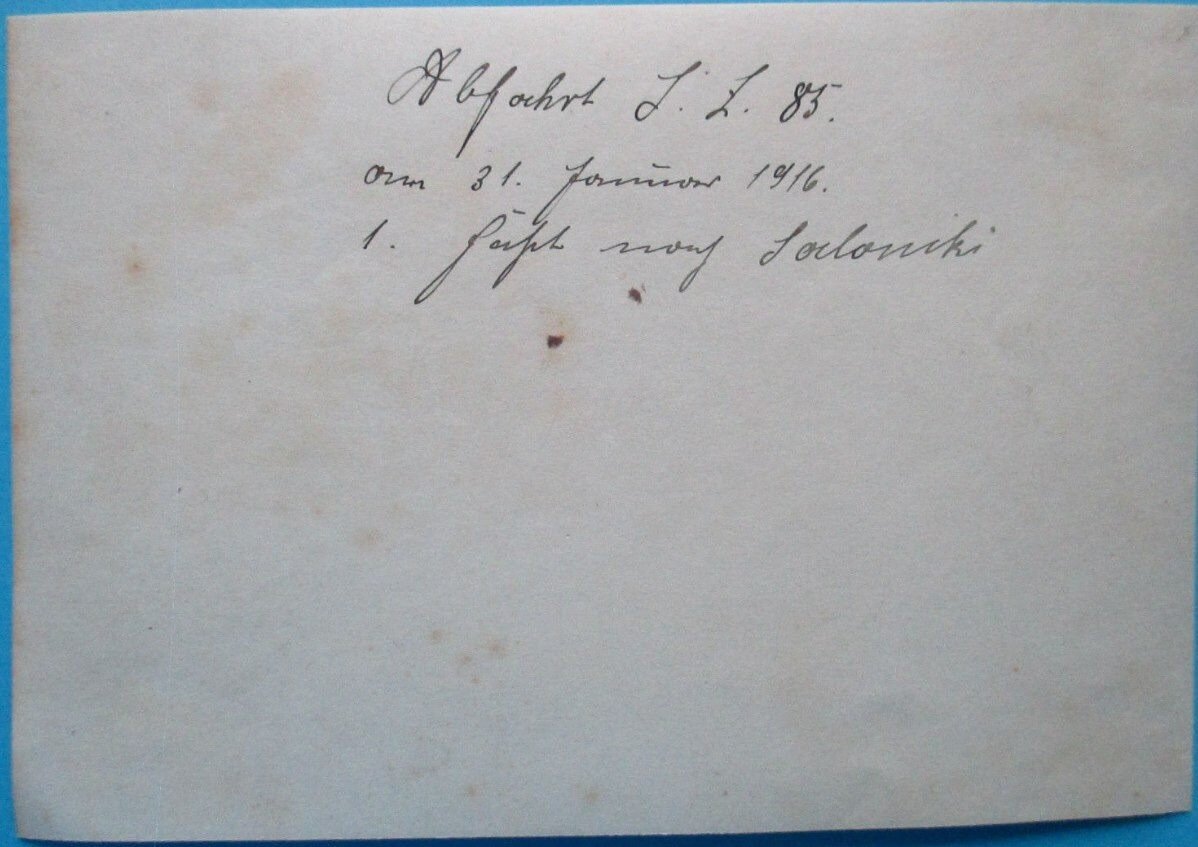 Abfahrt L. Z. 85.
am 31. Januar 1916.
1. Fahrt nach Saloniki